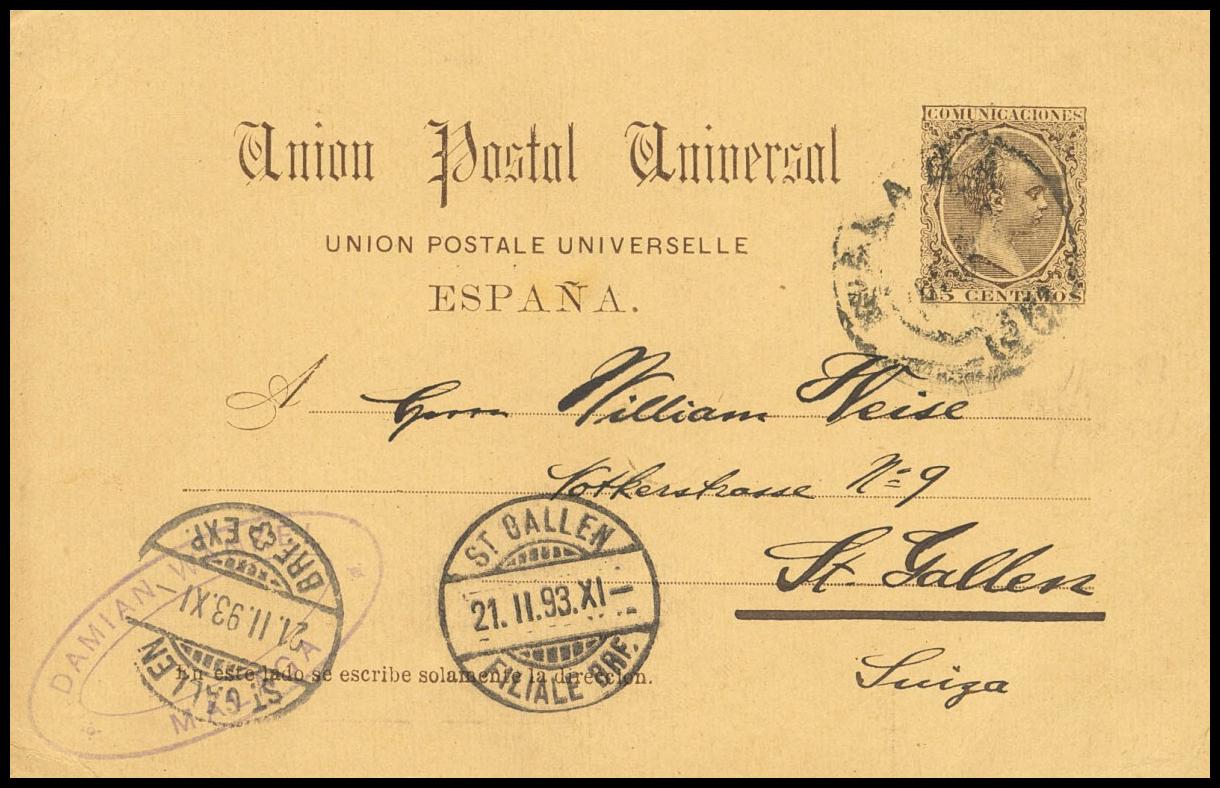 COMUNICACIONES
Union Postal Universal
UNION POSTALE UNIVERSELLE
15 CENTIMOS
ESPAÑA.
A Herrn William Weise
Notkerstrasse No 9
St. Gallen
Suiza
BRF. EXP.
21.II.93.XI
ST. GALLEN
ST GALLEN
21.II.93.XI–
FILIALE BRF.
DAMIAN
MALAGA
En este lado se escribe solamente la dirección.